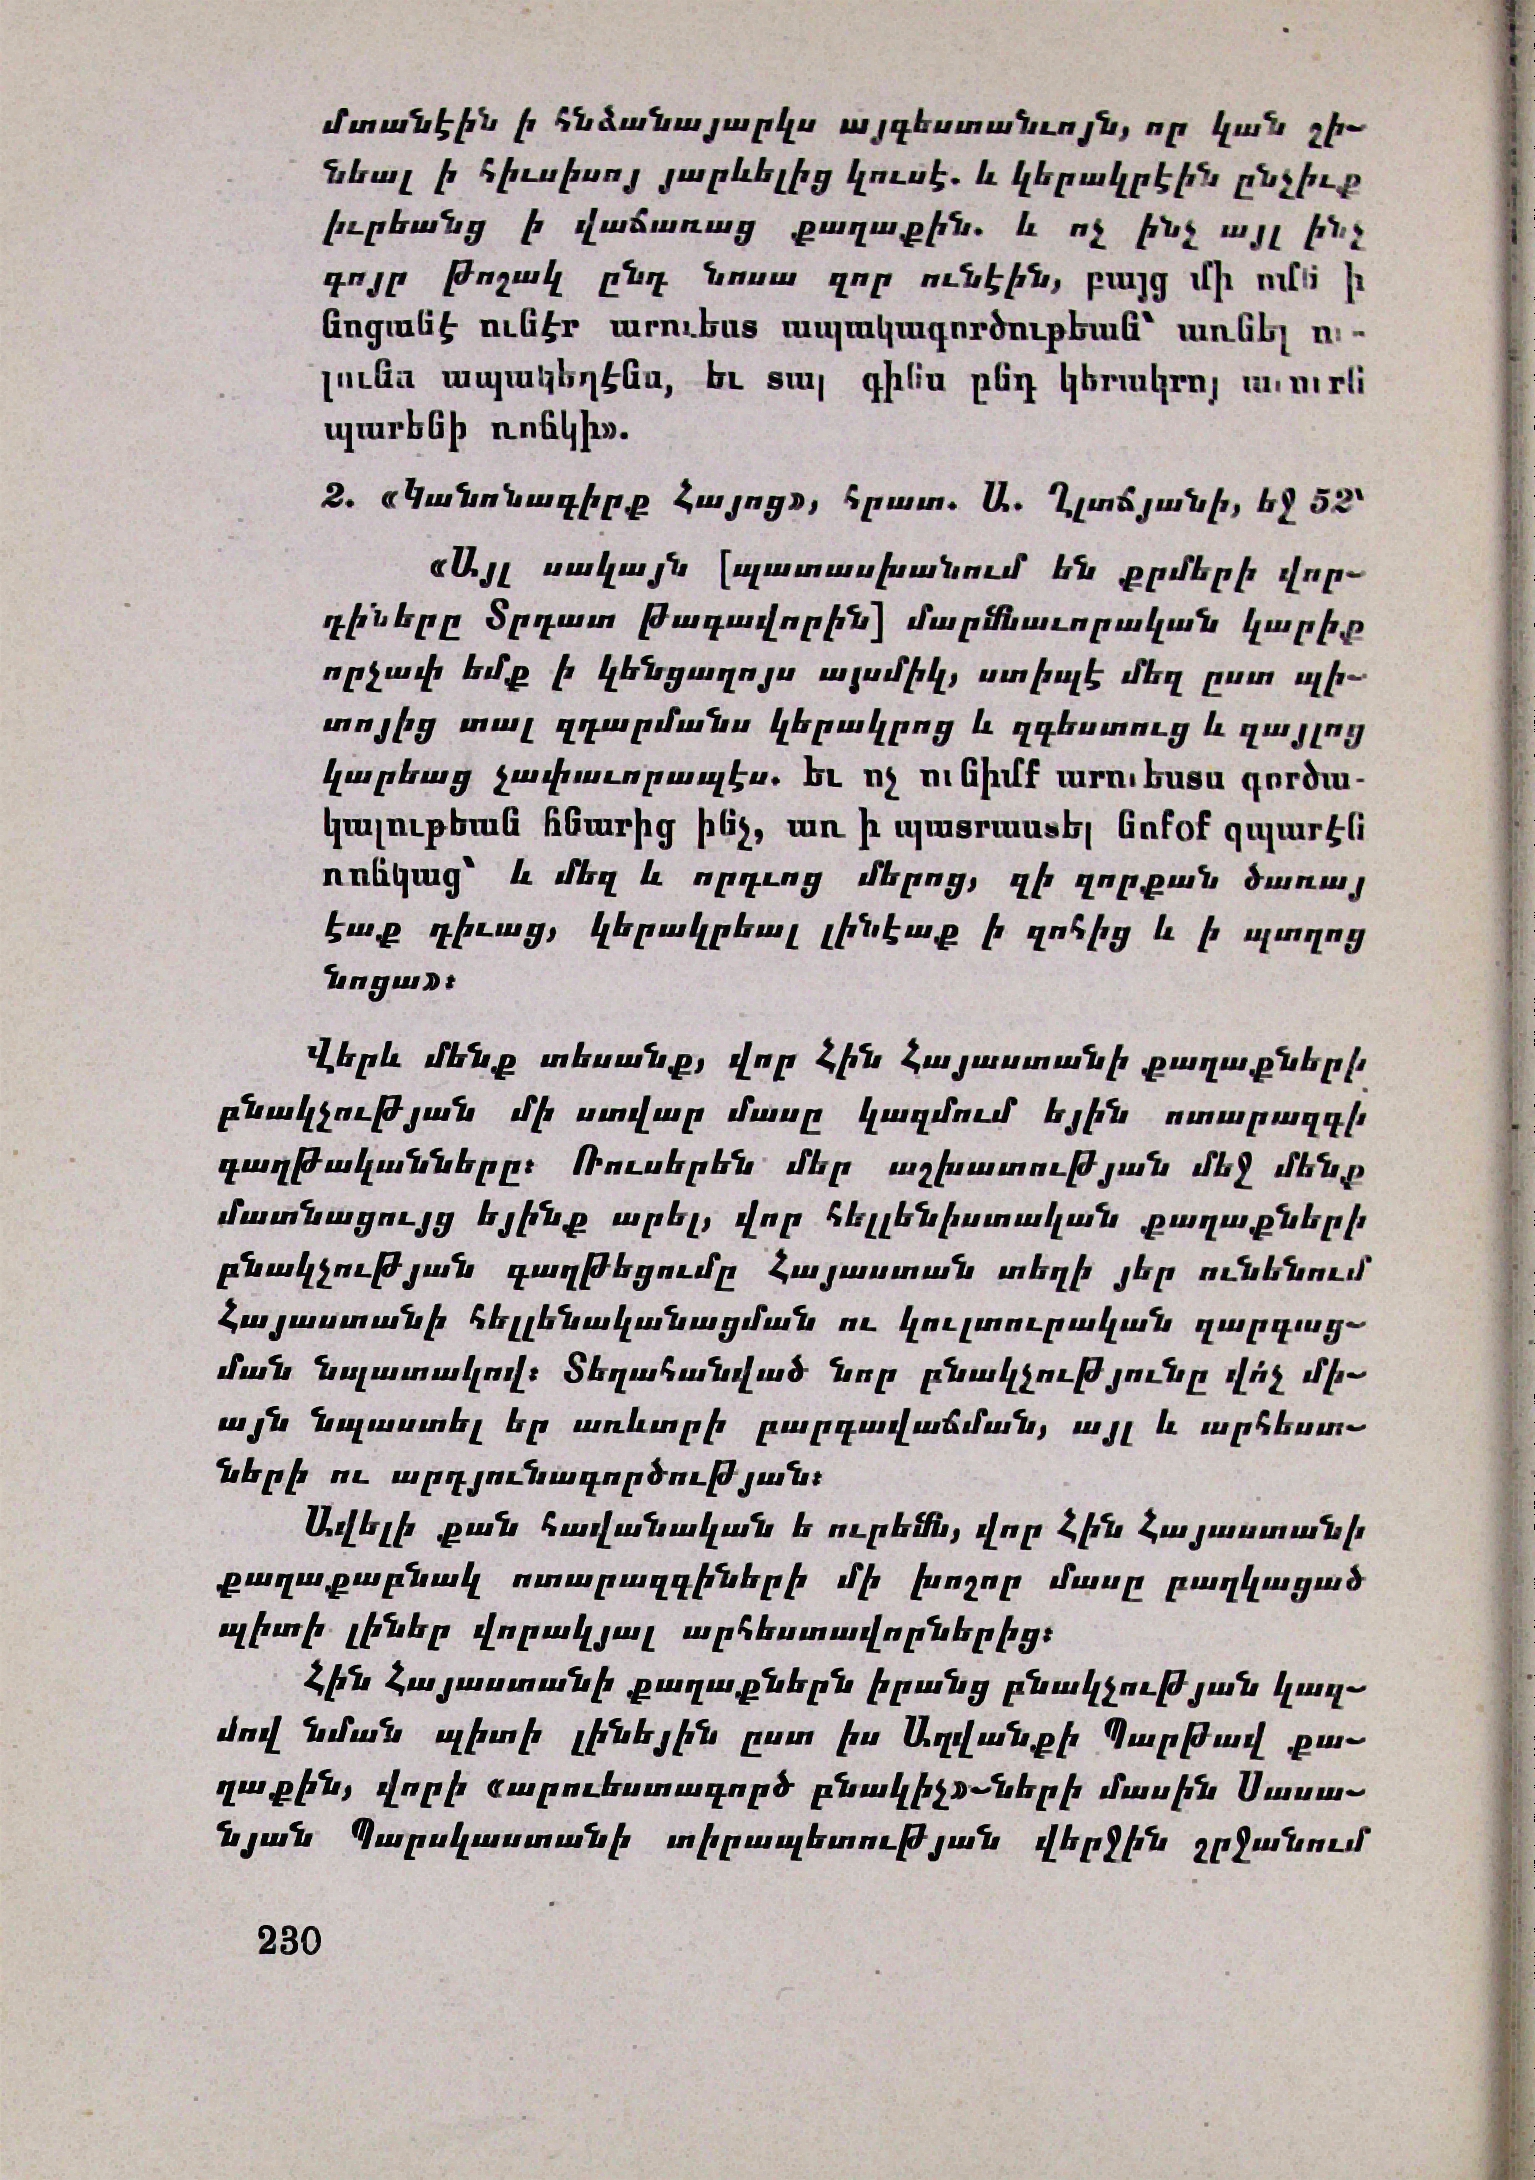 մտանէին ի հնձանայարկս այգեստանւոյն, որ կան շի-
նեալ ի հիւսիսոյ յարևելից կուսէ. և կերակրէին ընչիւք
իւրեանց ի վաճառաց քաղաքին. և ոչ ինչ այլ ինչ
գոյր թոշակ ընդ նոսա զոր ունէին, բայց մի ոմն ի
նոցանէ ունէր արուեստ ապակագործութեան՝ առնել ու-
լունս ապակեղէնս, եւ տալ գինս ընդ կերակրոյ աւուրն
պարենի ռոճկի».
2. «Կանոնագիրք Հայոց», հրատ. Ա. Ղլտճյանի, եջ 52՝
«Այլ սակայն [պատասխանում են քրմերի վոր-
դիները Տրդատ թագավորին] մարմնաւորական կարիք
որչափ եմք ի կենցաղոյս այսմիկ, ստիպէ մեզ ըստ պի-
տոյից տալ զդարմանս կերակրոց և զգեստուց և զայլոց
կարեաց չափաւորապէս. եւ ոչ ունիմք արուեստս գործա-
կալութեան հնարից ինչ, առ ի պատրաստել նոքօք զպարէն
ռոճկաց՝ և մեզ և որդւոց մերոց, զի զորքան ծառայ
էաք դիւաց, կերակրեալ լինէաք ի զոհից և ի պտղոց
նոցա»:
Վերև մենք տեսանք, վոր Հին Հայաստանի քաղաքների
բնակչության մի ստվար մասը կազմում եյին ոտարազգի
գաղթականները: Ռուսերեն մեր աշխատության մեջ մենք
մատնացույց եյինք արել, վոր հելլենիստական քաղաքների
բնակչության գաղթեցումը Հայաստան տեղի յեր ունենում
Հայաստանի հելլենականացման ու կուլտուրական զարգաց-
ման նպատակով: Տեղահանված նոր բնակչությունը վո՛չ մի-
այն նպաստել եր առևտրի բարգավաճման, այլ և արհեստ-
ների ու արդյունագործության:
Ավելի քան հավանական ե ուրեմն, վոր Հին Հայաստանի
քաղաքաբնակ ոտարազգիների մի խոշոր մասը բաղկացած
պիտի լիներ վորակյալ արհեստավորներից:
Հին Հայաստանի քաղաքներն իրանց բնակչության կազ-
մով նման պիտի լինեյին ըստ իս Աղվանքի Պարթավ քա-
ղաքին, վորի «արուեստագործ բնակիչ»-ների մասին Սասա-
նյան Պարսկաստանի տիրապետության վերջին շրջանում
230